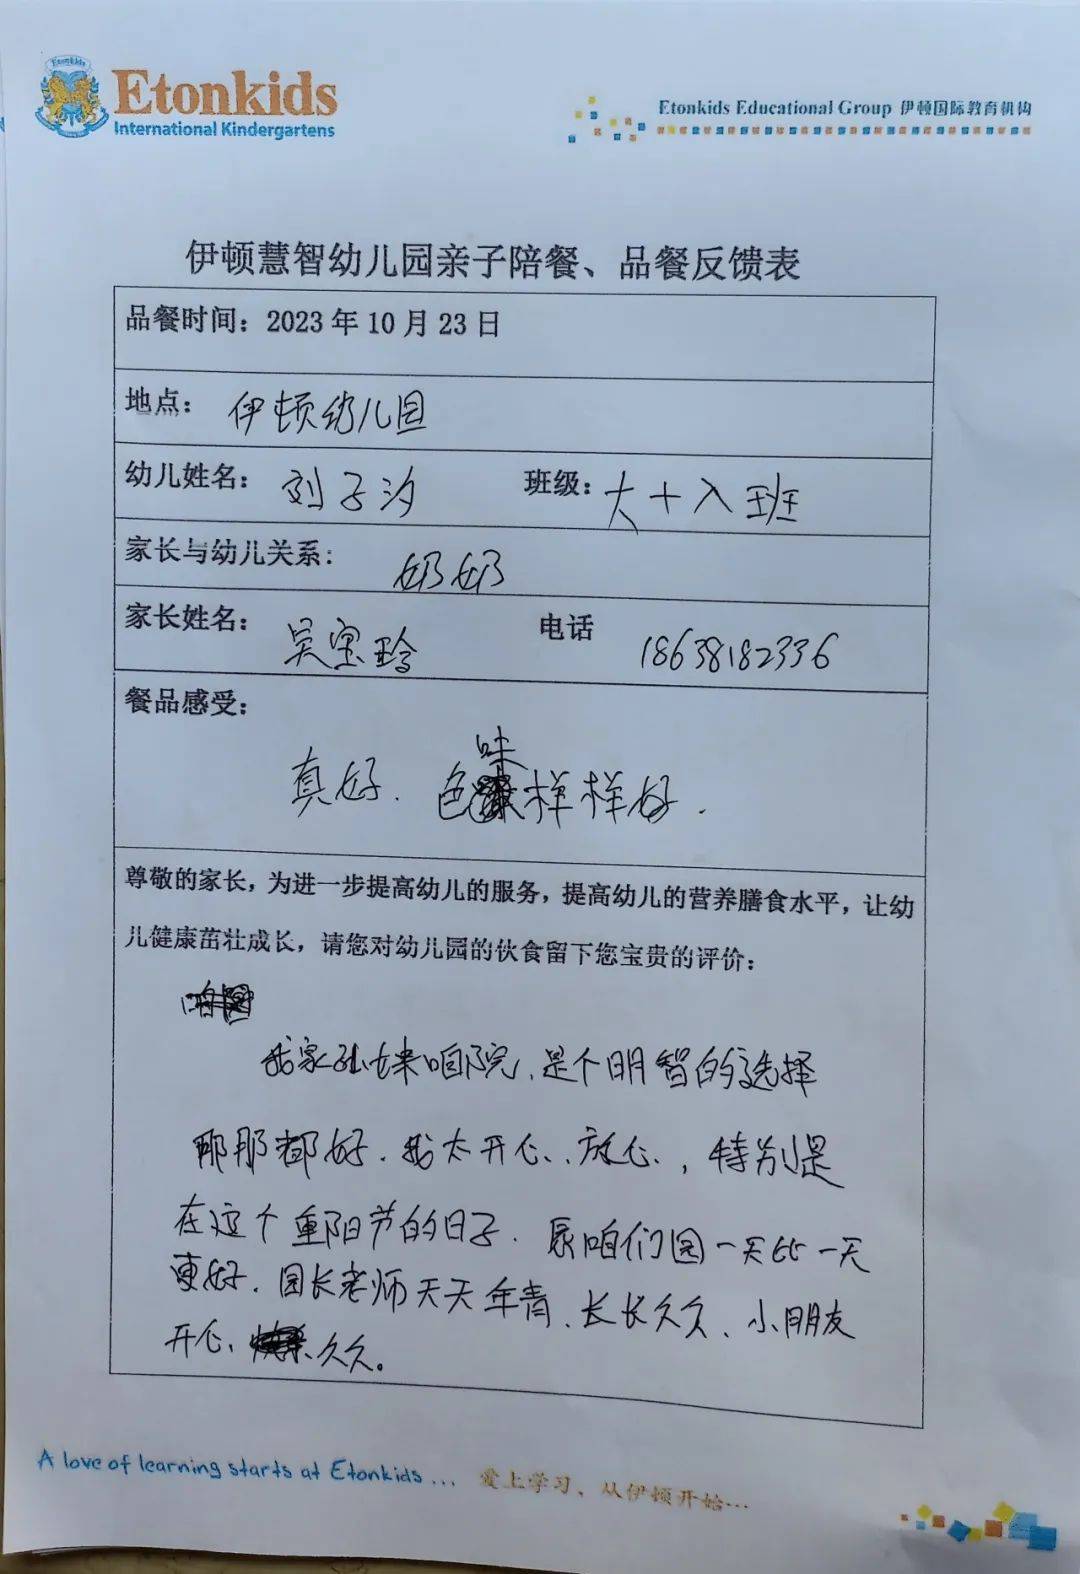 Etonkids
Etonkids
International Kindergartens
Etonkids Educational Group 伊顿国际教育机构
伊顿慧智幼儿园亲子陪餐、品餐反馈表
品餐时间：2023 年 10 月 23 日
地点： 伊顿幼儿园
幼儿姓名： 刘子汐 班级： 大十入班
家长与幼儿关系： 奶奶
家长姓名： 吴宝玲 电话 18638182336
餐品感受：
味
真好. 色样样好.
尊敬的家长，为进一步提高幼儿的服务，提高幼儿的营养膳食水平，让幼
儿健康茁壮成长，请您对幼儿园的伙食留下您宝贵的评价：
我家孙女来咱院, 是个明智的选择
那那都好. 我太开心、放心, 特别是
在这个重阳节的日子. 咱们园一天比一天
更好. 园长老师天天年青、长长久久、小朋友
开心、久久。
A love of learning starts at Etonkids ... 爱上学习、从伊顿开始...